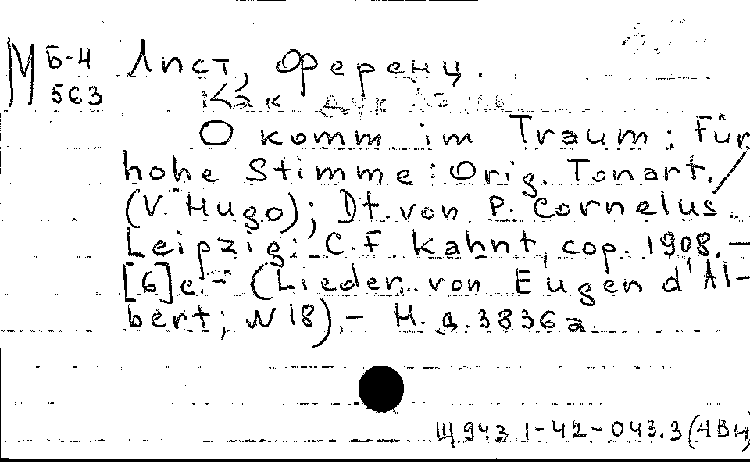 М Б-4
563
Лист, Ференц.
Как дух
O komm im Traum: Für
hohe Stimme: Orig. Tonart./
(V. Hugo); Dt. von P. Cornelus.
Leipzig: C. F. Kahnt, cop. 1908.—
[6]c.— (Lieder von Eugen d'Al-
bert; N 18).— Н. д. 3836a
Щ943.1-42-043.3(4Вн)